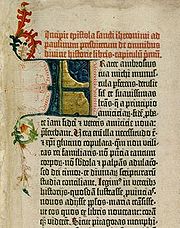 Incipit epistola sancti iheronimi ad
paulinum presbiterum de omnibus
divine historie libris·capitulū primū.
Frater ambrosius
tua michi munus-
cula perferens·detulit
simul et suavissimas
lrās·q̄ a principio
amicicia℞·fidē pba-
te iam fidei et veteris amicicie nova
preferebant. Vera em̄ illa necessitudo ē·
et xp̄i glutino copulata·qm̄ non utili-
tas rei familiaris·nō pn̄tia tantum
corporum·nō subdola et palpās adula-
cio·sed dei timor·et divina℞ scriptura℞
studia conciliant. Legim⁹ in veterib⁹
historiis·quosdā lustrasse pvincias·
novos adisse pplos·maria trāsisse·
ut eos quos ex libris noverant: corā
q℞ viderēt. Sicut pitagoras memphi-